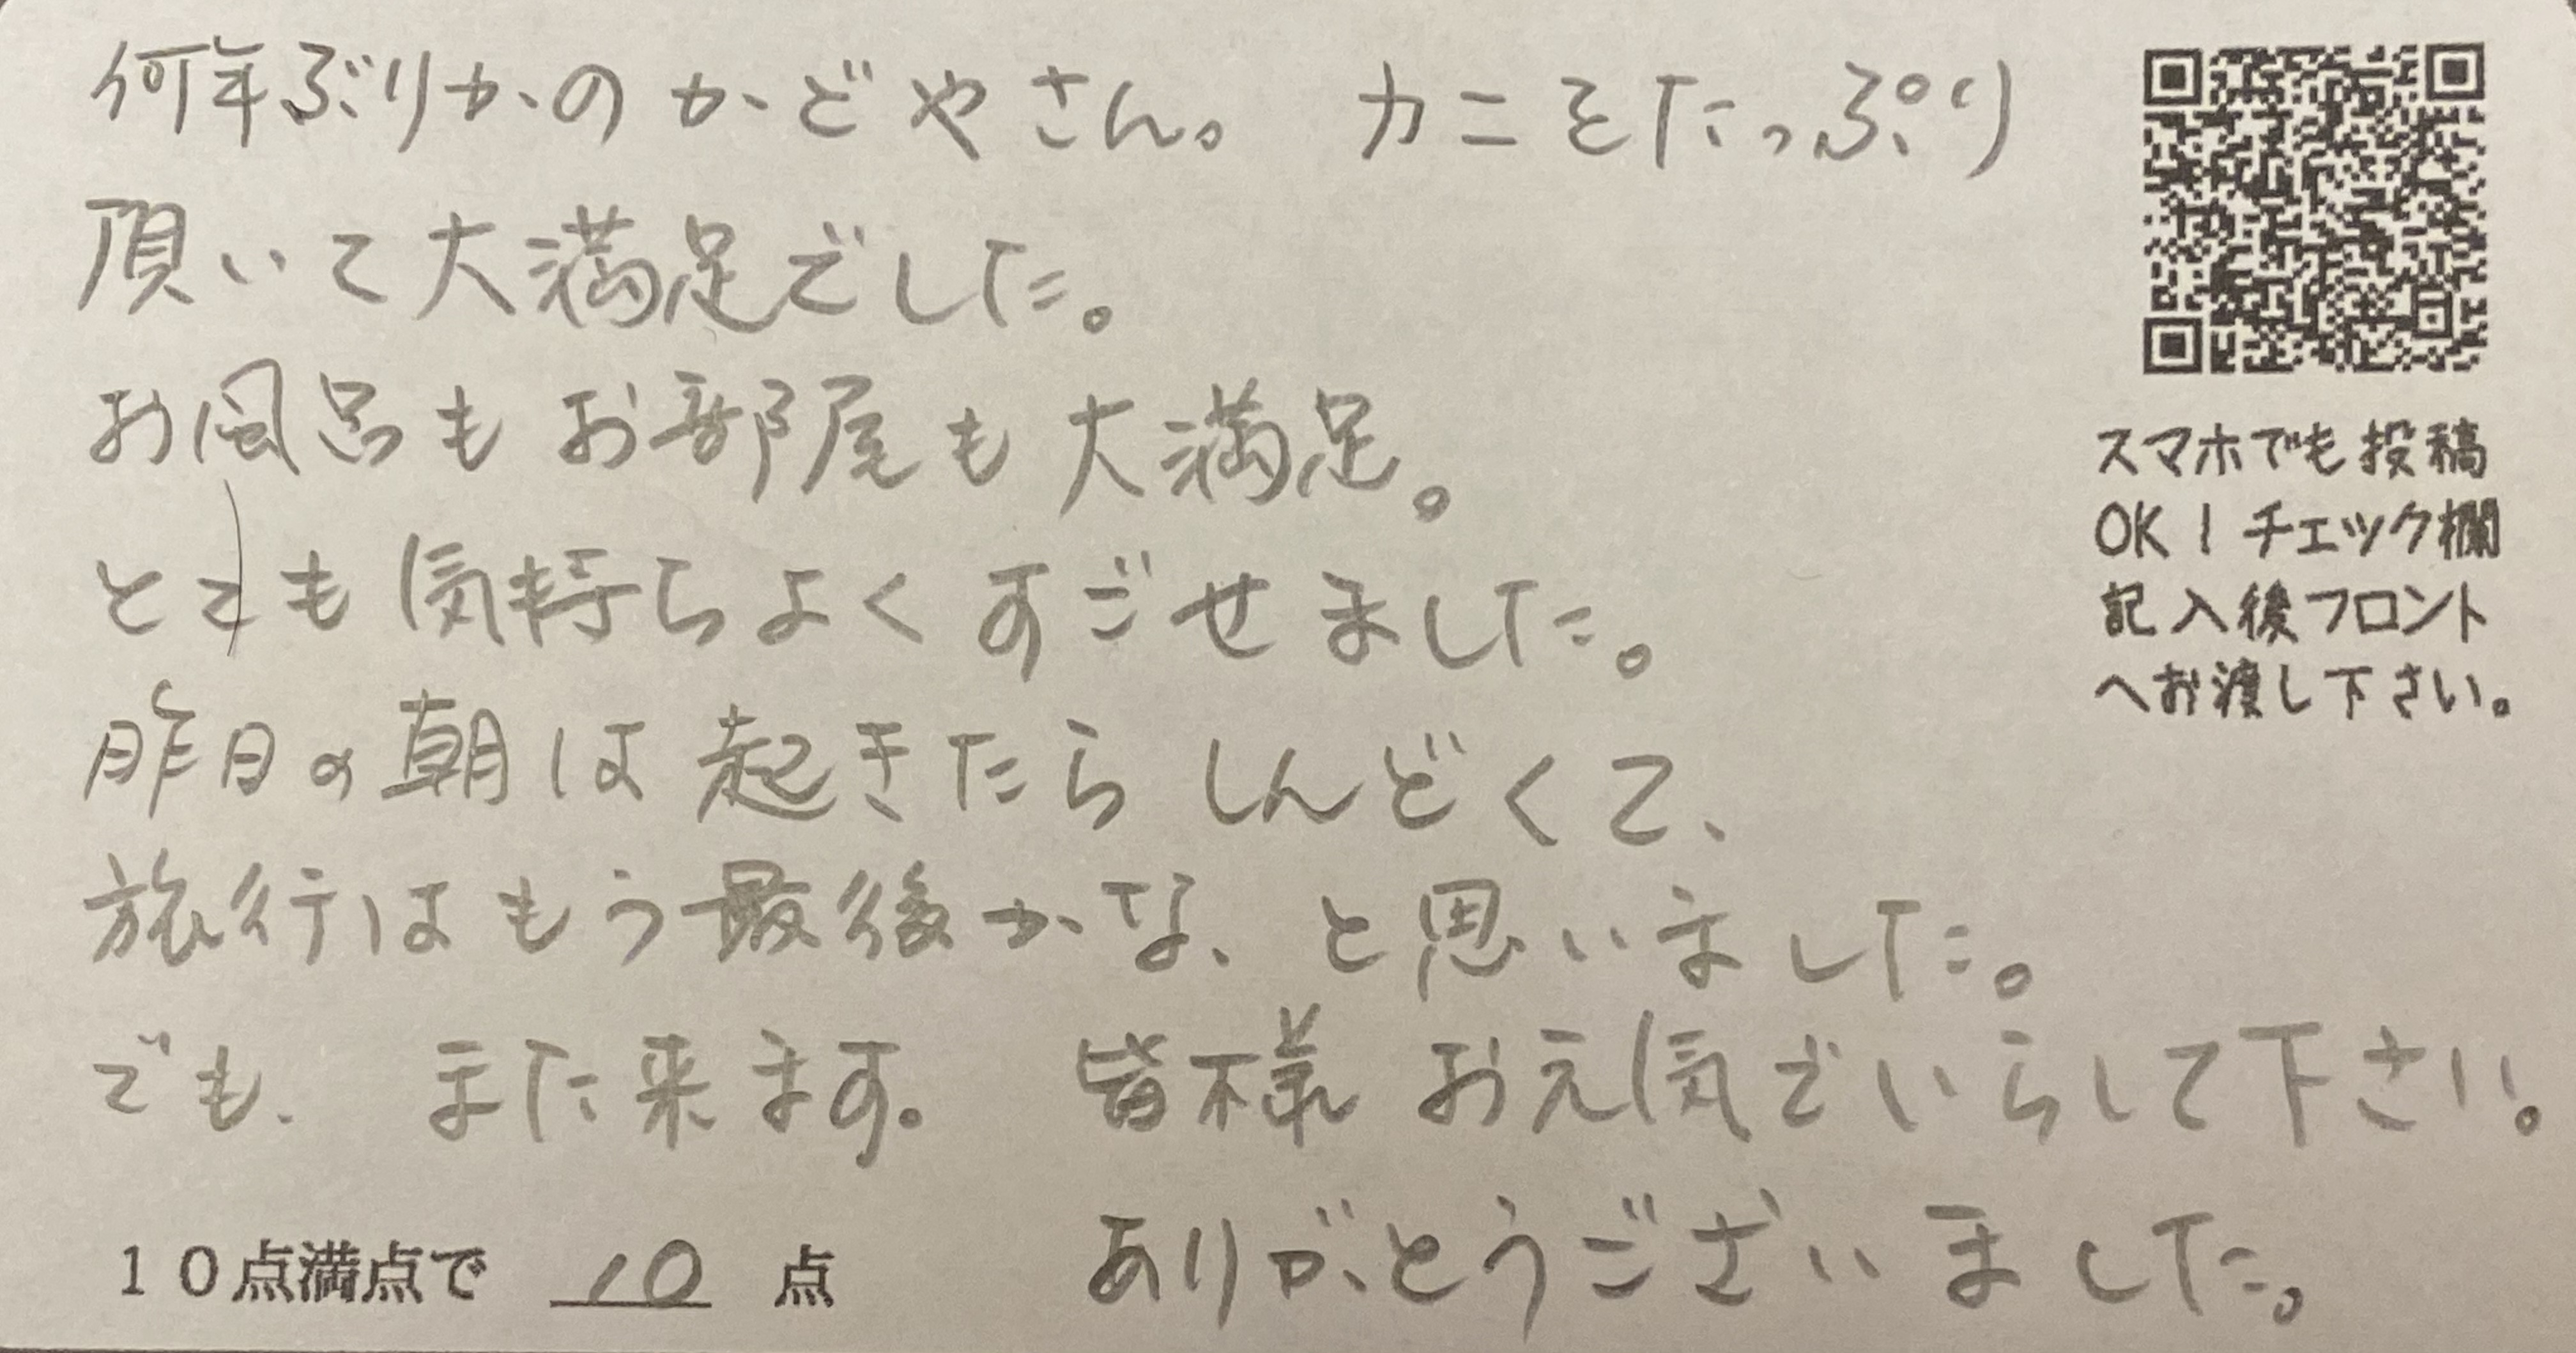 何年ぶりかのかどやさん。 カニをたっぷり
頂いて大満足でした。
お風呂もお部屋も大満足。
とても気持ちよくすごせました。
昨日の朝は起きたらしんどくて、
旅行はもう最後かな、と思いました。
でも、また来ます。 皆様お元気でいらして下さい。
ありがとうございました。
10点満点で 10 点
スマホでも投稿
OK！チェック欄
記入後フロント
へお渡し下さい。